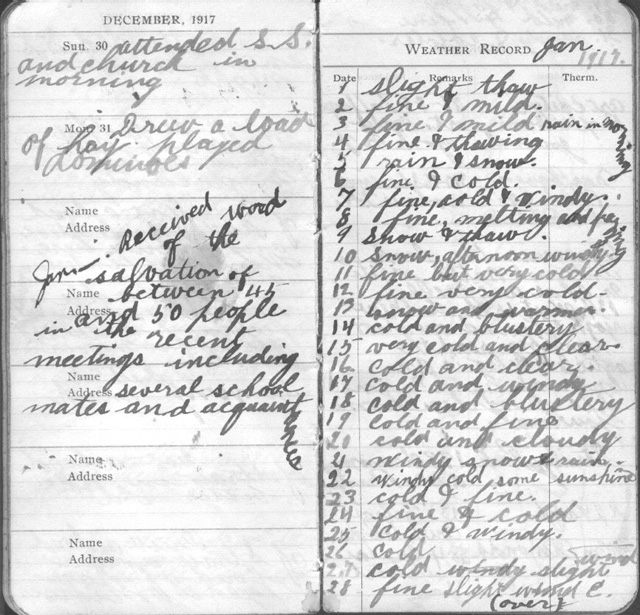 DECEMBER, 1917
Sun. 30 attended S.S.
and church in
morning
Mon. 31 Drew a load
of hay played
dominoes
Name
Address
Jan Received word
of the
salvation of
Name
between 45
Address
and 50 people
in the recent
meetings including
Name
Address several school
mates and acquaint
ances
Name
Address
Name
Address
WEATHER RECORD Jan.
1917.
Date Remarks Therm.
1 slight thaw
2 fine & mild.
3 fine & mild rain in
4 fine & thawing
5 rain & snow.
6 fine & cold.
7 fine, cold & windy.
8 fine, melting and
9 snow & thaw.
10 snow, windy
11 fine but very cold
12 fine very cold.
13 snow and warmer.
14 cold and blustery
15 very cold and clear.
16 cold and clear.
17 cold and windy
18 cold and blustery
19 cold and fine
20 cold and cloudy
21 windy snow & rain.
22 windy cold some sunshine
23 cold & fine.
24 fine & cold
25 cold & windy.
26 cold
27 cold windy slight
28 fine slight wind E.
(over)